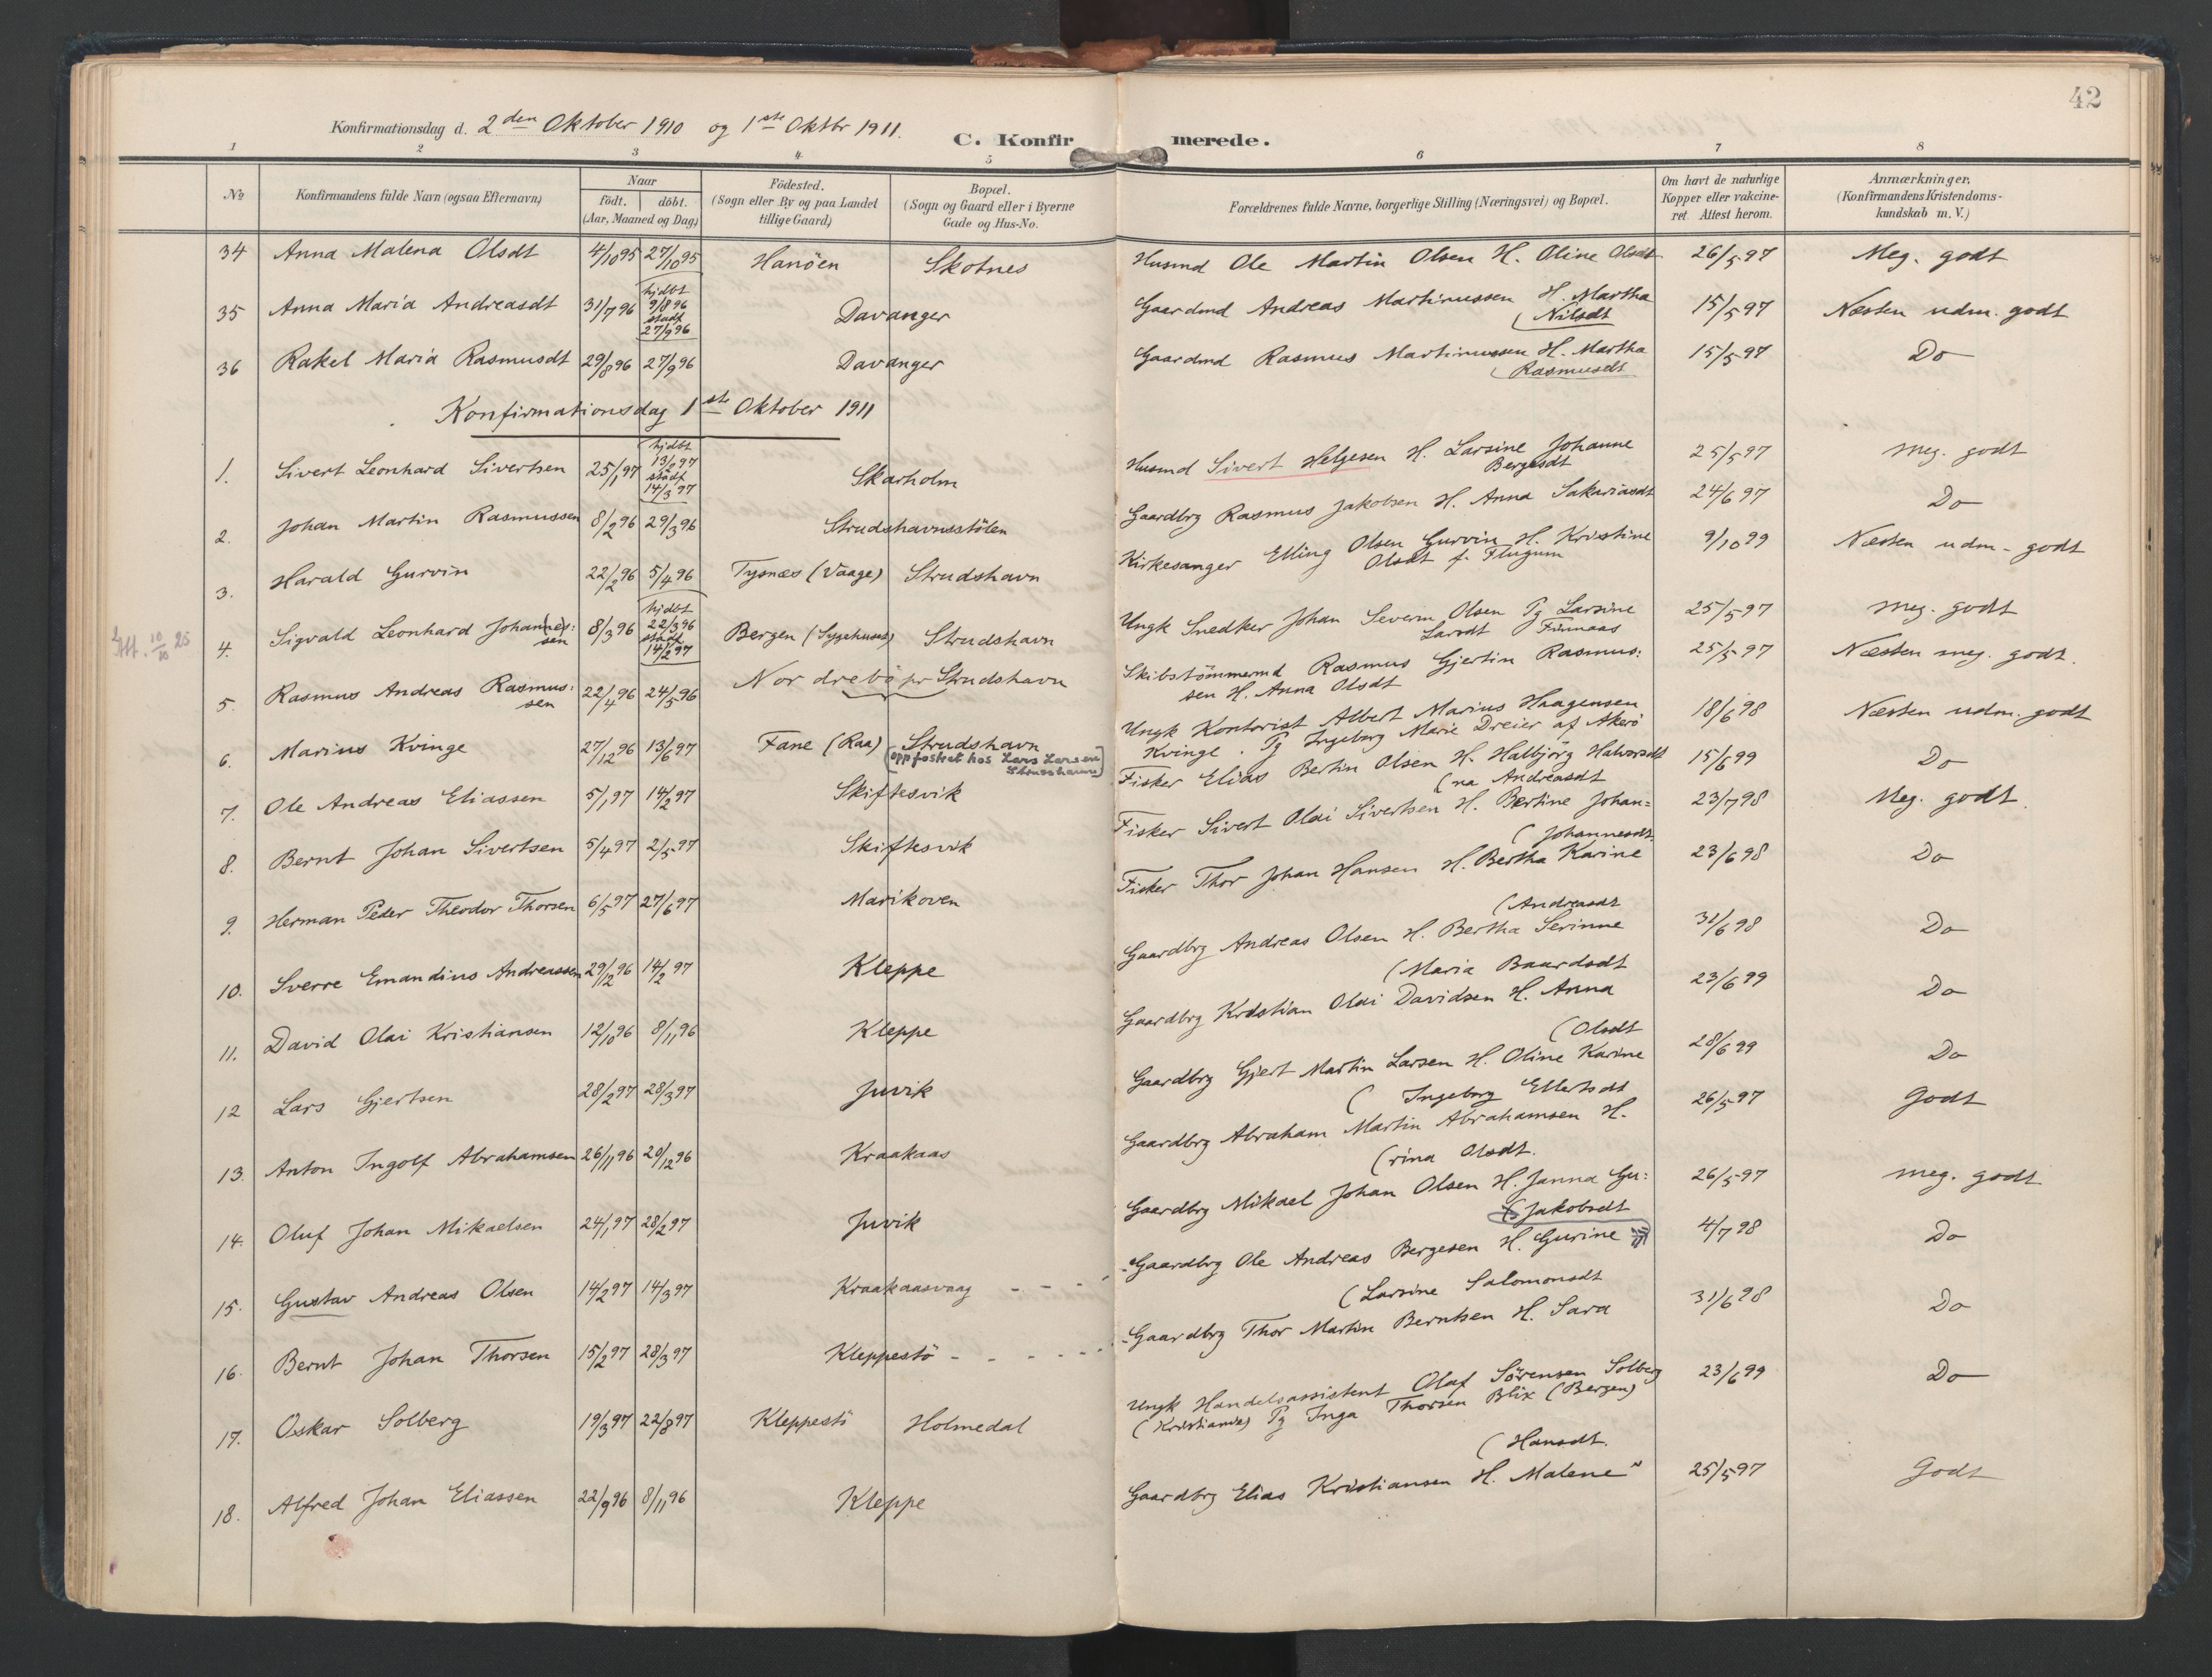 42
Konfirmationsdag d. 2den Oktober 1910 og 1ste Oktbr 1911.
C. Konfirmerede.
1 2 3 4 5 6 7 8
No
Konfirmandens fulde Navn (ogsaa Efternavn)
Naar
födt. döbt.
(Aar, Maaned og Dag)
Födested.
(Sogn eller By og paa Landet
tillige Gaard)
Bopæl.
(Sogn og Gaard eller i Byerne
Gade og Hus-No.
Forældrenes fulde Navne, borgerlige Stilling (Næringsvei) og Bopæl.
Om havt de naturlige
Kopper eller vakcine-
ret. Attest herom.
Anmærkninger.
(Konfirmandens Kristendoms-
kundskab m. V.)
34 Anna Malena Olsdt 4/10 95 27/10 95 Hanöen Skotnes Husmd Ole Martin Olsen H. Oline Olsdt 26/5 97 Meg. godt
35 Anna Maria Andreasdt 31/7 96 hjdbt 9/8 96 stadf 27/9 96 Davanger Gaardmd Andreas Martinussen H. Martha (Nilsdt 15/5 97 Næsten udm. godt
36 Rakel Maria Rasmusdt 29/8 96 27/9 96 Davanger Gaardmd Rasmus Martinussen H. Martha (Rasmusdt 15/5 97 Do
Konfirmationsdag 1ste Oktober 1911
1. Sivert Leonhard Sivertsen 25/1 97 hjdbt 13/2 97 stadf 14/3 97 Skarholm Husmd Sivert Helgesen H. Larsine Johanne Bergesdt 25/5 97 meg. godt
2. Johan Martin Rasmussen 8/2 96 29/3 96 Strudshavnsstölen Gaardbrg Rasmus Jakobsen H. Anna Sakariasdt 24/6 97 Do
3. Harald Gurvin 22/2 96 5/4 96 Tysnæs (Vaage) Strudshavn Kirkesanger Elling Olsen Gurvin H. Kristine Olsdt f. Flugum 9/10 99 Næsten udm- godt
4. Sigvald Leonhard Johannes: sen 8/3 96 hjdbt 22/3 96 stadf 14/2 97 Bergen (Sygehuset) Strudshavn Ungk Snedker Johan Severin Olsen Pg Larsine Larsdt Finnaas 25/5 97 meg. godt
5. Rasmus Andreas Rasmus: sen 22/4 96 24/5 96 Nordrebö pr Strudshavn Skibstömmermd Rasmus Gjertin Rasmus: sen H. Anna Olsdt 25/5 97 Næsten meg. godt.
6. Marius Kvinge 27/12 96 13/6 97 Fane (Raa) Strudshavn (oppfostret hos Lars Larsen Strusshavn) Ungk Kontorist Albert Marius Haagensen Kvinge. Pg Ingeborg Marie Dreier af Akerö 18/6 98 Næsten udm. godt
7. Ole Andreas Eliassen 5/1 97 14/2 97 Skiftesvik Fisker Elias Bertin Olsen H. Halbjörg Halvorsdt 15/6 99 Do
8. Bernt Johan Sivertsen 5/4 97 2/5 97 Skiftesvik Fisker Sivert Olai Sivertsen H. Bertine Johan= (na Andreasdt 23/7 98 Meg. godt.
9. Herman Peder Theodor Thorsen 6/5 97 27/6 97 Marikoven Fisker Thor Johan Hansen H. Bertha Karine (Johannesdt 23/6 98 Do
10. Sverre Emandius Andreassen 29/12 96 14/2 97 Kleppe Gaardbrg Andreas Olsen H. Bertha Serinne (Andreasdt 31/6 98 Do
11. David Olai Kristiansen 12/10 96 8/11 96 Kleppe Gaardbrg Kristian Olai Davidsen H. Anna (Maria Baardsdt 23/6 99 Do
12 Lars Gjertsen 28/2 97 28/3 97 Juvik Gaardbrg Gjert Martin Larsen H. Oline Karine (Olsdt 28/6 99 Do
13. Anton Ingolf Abrahamsen 26/11 96 20/12 96 Kraakaas Gaardbrg Abraham Martin Abrahamsen H. (Ingeborg Ellertsdt 26/5 97 Godt
14. Oluf Johan Mikaelsen 24/1 97 28/2 97 Juvik Gaardbrg Mikael Johan Olsen H. Janna Gu: (rina Olsdt. 26/5 97 meg. godt
15. Gustav Andreas Olsen 14/2 97 14/3 97 Kraakaasvaag Gaardbrg Ole Andreas Bergesen H. Gurine (Jakobsdt 4/7 98 Do
16. Bernt Johan Thorsen 15/2 97 28/3 97 Kleppestö Gaardbrg Thor Martin Berntsen H. Sara (Larsine Salomonsdt 31/6 98 Do
17. Oskar Solberg 19/3 97 22/8 97 Kleppestö Holmedal Ungk Handelsassistent Olaf Sörensen Solberg (Kristiania) Pg Inga Thorsen Blix (Bergen) 23/6 99 Do
18. Alfred Johan Eliassen 22/9 96 8/11 96 Kleppe Gaardbrg Elias Kristiansen H. Malene (Hansdt. 25/5 97 Godt